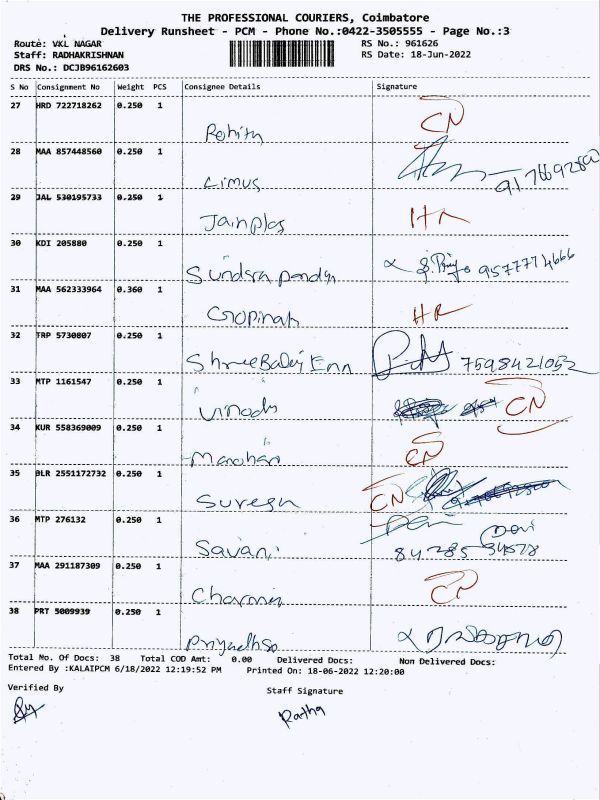 THE PROFESSIONAL COURIERS, Coimbatore
Delivery Runsheet - PCM - Phone No.:0422-3505555 - Page No.:3
Route: VKL NAGAR RS No.: 961626
Staff: RADHAKRISHNAN RS Date: 18-Jun-2022
DRS No.: DCJB96162603
S No Consignment No Weight PCS Consignee Details Signature
27 HRD 722718262 0.250 1
Rohith CN
28 MAA 857448560 0.250 1
Limus
29 JAL 530195733 0.250 1
Jainplas HR
30 KDI 205880 0.250 1
Sundra pandy
31 MAA 562333964 0.360 1
Gopinath HR
32 TRP 5730807 0.250 1
Shree Balaji Enn 7598421052
33 MTP 1161547 0.250 1
Vinodh CN
34 KUR 558369009 0.250 1
Manohari CN
35 BLR 2551172732 0.250 1
Suresh CN
36 MTP 276132 0.250 1
Devi
Savani 84285 34578
37 MAA 291187309 0.250 1
Charmin CN
38 PRT 5009939 0.250 1
Total No. Of Docs: 38 Total COD Amt: 0.00 Delivered Docs: Non Delivered Docs:
Entered By :KALAIPCM 6/18/2022 12:19:52 PM Printed On: 18-06-2022 12:20:00
Verified By Staff Signature
Ratha